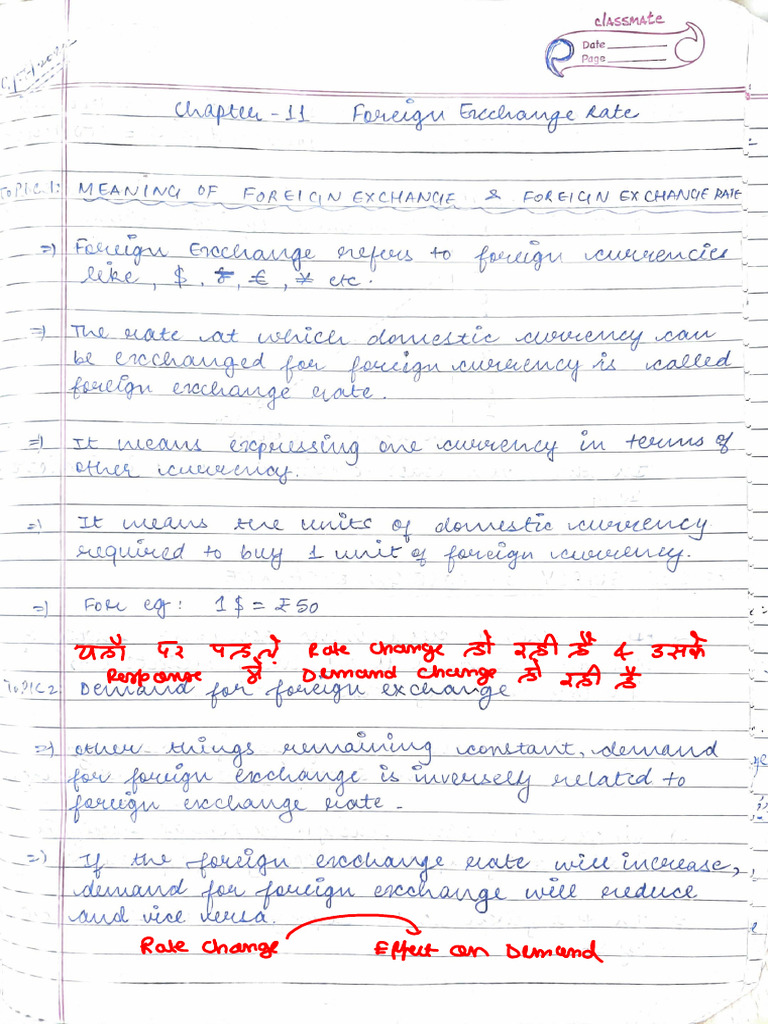 classmate
Date
Page
Chapter - 11 Foreign Exchange Rate
TOPIC 1: MEANING OF FOREIGN EXCHANGE & FOREIGN EXCHANGE RATE
=) Foreign Exchange refers to foreign currencies
like, $, €, ¥ etc.
=) The rate at which domestic currency can
be exchanged for foreign currency is called
foreign exchange rate.
=) It means expressing one currency in terms of
other currency.
=) It means the units of domestic currency
required to buy 1 unit of foreign currency.
=) For eg: 1$ = ₹50
यहाँ पर पहले Rate change हो रही है & उसके
Response में Demand change हो रही है
TOPIC 2: Demand for foreign exchange
=) Other things remaining constant, demand
for foreign exchange is inversely related to
foreign exchange rate.
=) If the foreign exchange rate will increase,
demand for foreign exchange will reduce
and vice versa.
Rate change Effect on Demand